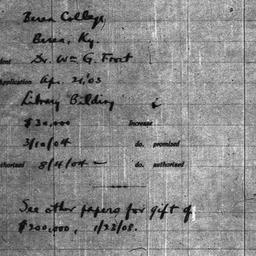 Berea College,
Berea, Ky.
dent Dr. Wm G. Frost
Application Apr. 21, '03
Library Building
$30,000 Increase
3/10/04 do. promised
thorized 8/4/04 — do. authorized
See other papers for gift of
$200,000, 1/22/08.